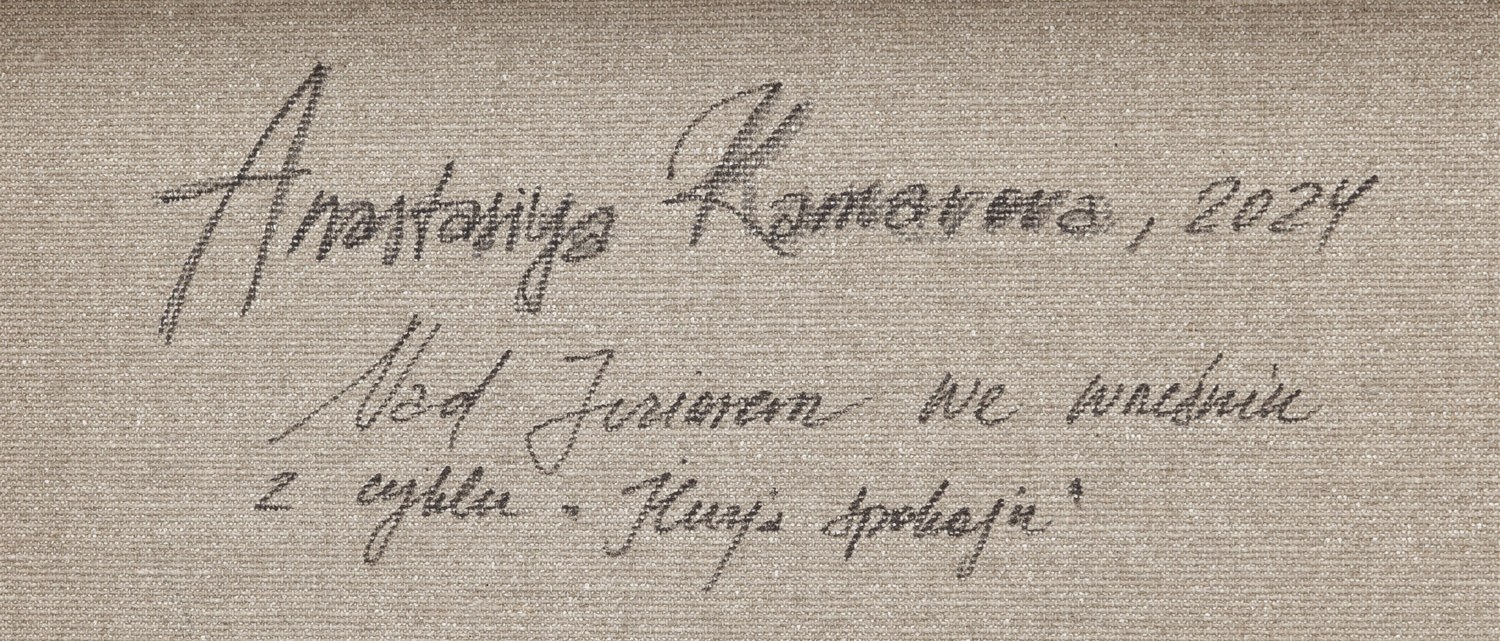 Anastasiya Kamarova, 2024
Nad Jeziorem we wrześniu
z cyklu "Iluzja spokoju"